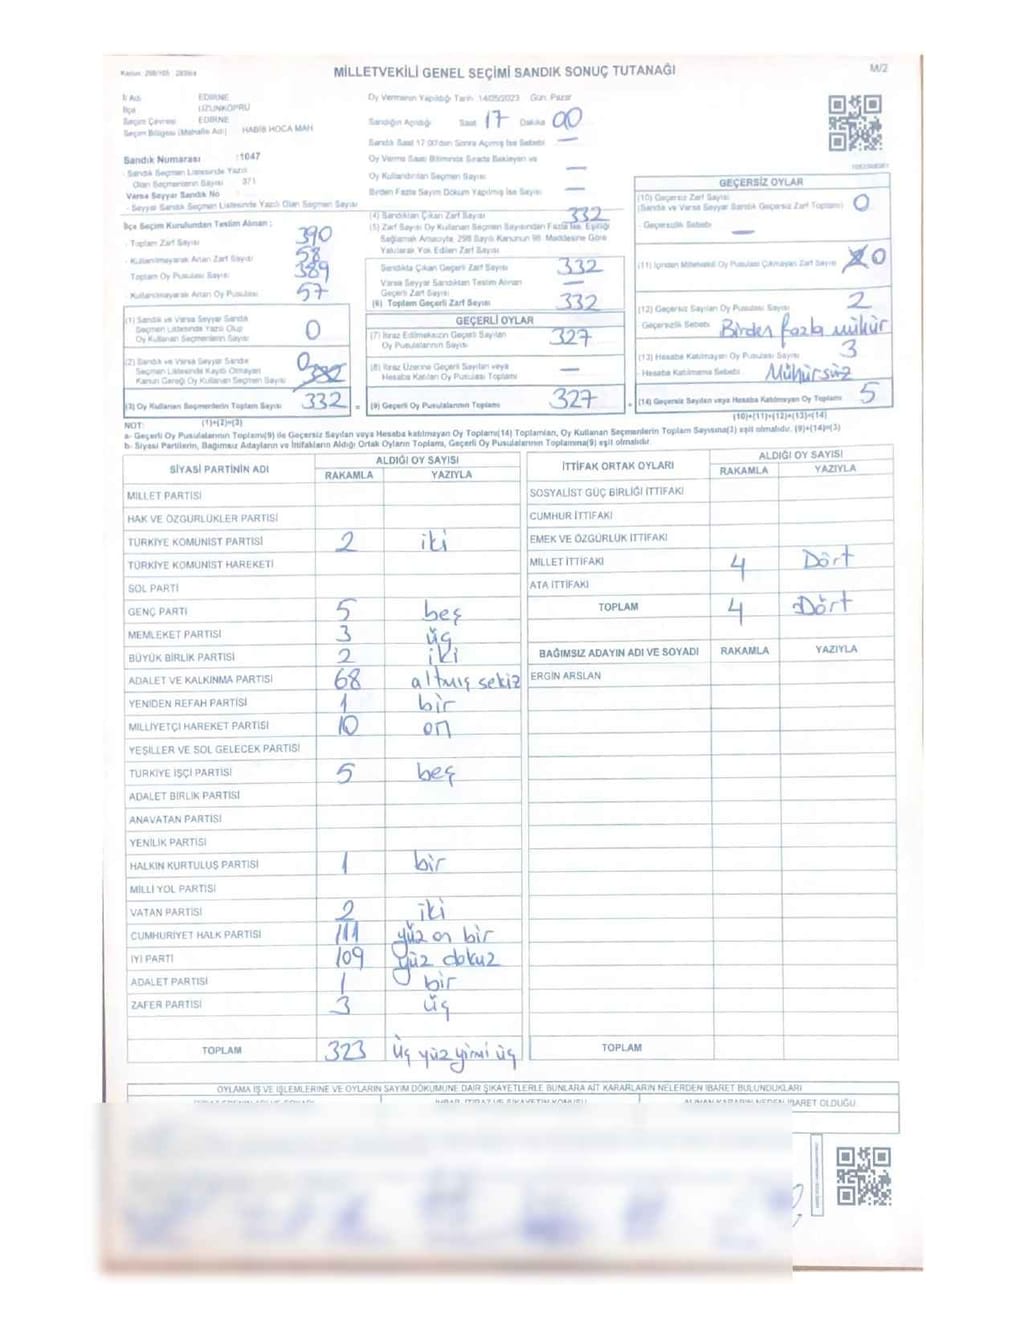 Kanun: 298/105 2839/4
MİLLETVEKİLİ GENEL SEÇİMİ SANDIK SONUÇ TUTANAĞI
M/2
İl Adı EDİRNE
İlçe UZUNKÖPRÜ
Seçim Çevresi EDİRNE
Seçim Bölgesi (Mahalle Adı) HABİB HOCA MAH
Sandık Numarası :1047
- Sandık Seçmen Listesinde Yazılı
Olan Seçmenlerin Sayısı 371
Varsa Seyyar Sandık No
- Seyyar Sandık Seçmen Listesinde Yazılı Olan Seçmen Sayısı
Oy Vermenin Yapıldığı Tarih 14/05/2023 Gün: Pazar
Sandığın Açıldığı Saat 17 Dakika 00
Sandık Saat 17:00'dan Sonra Açılmış İse Sebebi —
Oy Verme Saati Bitiminde Sırada Bekleyen ve
Oy Kullandırılan Seçmen Sayısı —
Birden Fazla Sayım Döküm Yapılmış İse Sayısı —
İlçe Seçim Kurulundan Teslim Alınan ;
- Toplam Zarf Sayısı 390
- Kullanılmayarak Artan Zarf Sayısı 58
Toplam Oy Pusulası Sayısı 389
Kullanılmayarak Artan Oy Pusulası 57
(1) Sandık ve Varsa Seyyar Sandık
Seçmen Listesinde Yazılı Olup
Oy Kullanan Seçmenlerin Sayısı 0
(2) Sandık ve Varsa Seyyar Sandık
Seçmen Listesinde Kayıtlı Olmayan
Kanun Gereği Oy Kullanan Seçmen Sayısı 0 332
(3) Oy Kullanan Seçmenlerin Toplam Sayısı 332
(1)+(2)=(3)
(4) Sandıktan Çıkan Zarf Sayısı 332
(5) Zarf Sayısı Oy Kullanan Seçmen Sayısından Fazla İse, Eşitliği
Sağlamak Amacıyla, 298 Sayılı Kanunun 98. Maddesine Göre
Yakılarak Yok Edilen Zarf Sayısı
Sandıkta Çıkan Geçerli Zarf Sayısı 332
Varsa Seyyar Sandıktan Teslim Alınan
Geçerli Zarf Sayısı —
(6) Toplam Geçerli Zarf Sayısı 332
GEÇERLİ OYLAR
(7) İtiraz Edilmeksizin Geçerli Sayılan
Oy Pusulalarının Sayısı 327
(8) İtiraz Üzerine Geçerli Sayılan veya
Hesaba Katılan Oy Pusulası Toplamı —
= (9) Geçerli Oy Pusulalarının Toplamı 327
GEÇERSİZ OYLAR
(10) Geçersiz Zarf Sayısı
(Sandık ve Varsa Seyyar Sandık Geçersiz Zarf Toplamı) 0
- Geçersizlik Sebebi —
(11) İçinden Milletvekili Oy Pusulası Çıkmayan Zarf Sayısı 0
(12) Geçersiz Sayılan Oy Pusulası Sayısı 2
Geçersizlik Sebebi Birden fazla mühür
(13) Hesaba Katılmayan Oy Pusulası Sayısı 3
- Hesaba Katılmama Sebebi Mühürsüz
+ (14) Geçersiz Sayılan veya Hesaba Katılmayan Oy Toplamı 5
(10)+(11)+(12)+(13)=(14)
NOT:
a- Geçerli Oy Pusulalarının Toplamı(9) ile Geçersiz Sayılan veya Hesaba katılmayan Oy Toplamı(14) Toplamları, Oy Kullanan Seçmenlerin Toplam Sayısına(3) eşit olmalıdır. (9)+(14)=(3)
b- Siyasi Partilerin, Bağımsız Adayların ve İttifakların Aldığı Ortak Oyların Toplamı, Geçerli Oy Pusulalarının Toplamına(9) eşit olmalıdır.
SİYASİ PARTİNİN ADI
ALDIĞI OY SAYISI
RAKAMLA YAZIYLA
MİLLET PARTİSİ
HAK VE ÖZGÜRLÜKLER PARTİSİ
TÜRKİYE KOMÜNİST PARTİSİ 2 iki
TÜRKİYE KOMÜNİST HAREKETİ
SOL PARTİ
GENÇ PARTİ 5 beş
MEMLEKET PARTİSİ 3 üç
BÜYÜK BİRLİK PARTİSİ 2 iki
ADALET VE KALKINMA PARTİSİ 68 altmış sekiz
YENİDEN REFAH PARTİSİ 1 bir
MİLLİYETÇİ HAREKET PARTİSİ 10 on
YEŞİLLER VE SOL GELECEK PARTİSİ
TÜRKİYE İŞÇİ PARTİSİ 5 beş
ADALET BİRLİK PARTİSİ
ANAVATAN PARTİSİ
YENİLİK PARTİSİ
HALKIN KURTULUŞ PARTİSİ 1 bir
MİLLİ YOL PARTİSİ
VATAN PARTİSİ 2 iki
CUMHURİYET HALK PARTİSİ 111 yüz on bir
İYİ PARTİ 109 yüz dokuz
ADALET PARTİSİ 1 bir
ZAFER PARTİSİ 3 üç
TOPLAM 323 üç yüz yirmi üç
İTTİFAK ORTAK OYLARI
ALDIĞI OY SAYISI
RAKAMLA YAZIYLA
SOSYALİST GÜÇ BİRLİĞİ İTTİFAKI
CUMHUR İTTİFAKI
EMEK VE ÖZGÜRLÜK İTTİFAKI
MİLLET İTTİFAKI 4 Dört
ATA İTTİFAKI
TOPLAM 4 Dört
BAĞIMSIZ ADAYIN ADI VE SOYADI RAKAMLA YAZIYLA
ERGİN ARSLAN
TOPLAM
OYLAMA İŞ VE İŞLEMLERİNE VE OYLARIN SAYIM DÖKÜMÜNE DAİR ŞİKAYETLERLE BUNLARA AİT KARARLARIN NELERDEN İBARET BULUNDUKLARI
İHBAR, İTİRAZ VE ŞİKAYETİN KONUSU
ALINAN KARARIN NEDEN İBARET OLDUĞU